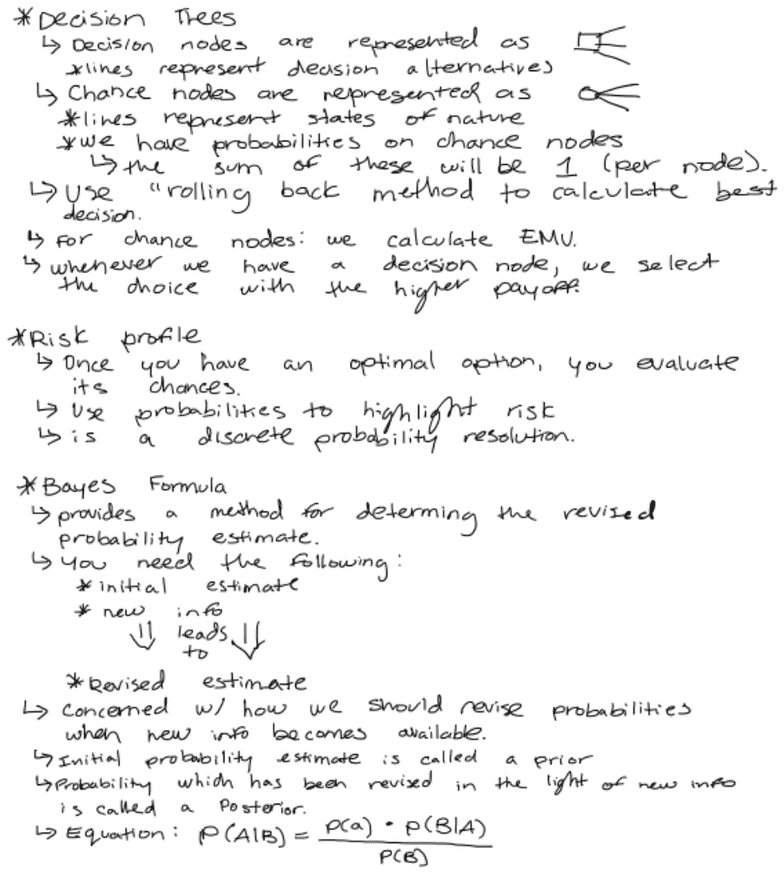 *Decision Trees
↳ Decision nodes are represented as
*lines represent decision alternatives
↳ Chance nodes are represented as
*lines represent states of nature
*we have probabilities on chance nodes
↳ the sum of these will be 1 (per node).
↳ Use "rolling back method to calculate best
decision.
↳ For chance nodes: we calculate EMV.
↳ whenever we have a decision node, we select
the choice with the higher payoff.
*Risk profile
↳ Once you have an optimal option, you evaluate
its chances.
↳ Use probabilities to highlight risk
↳ is a discrete probability resolution.
*Bayes Formula
↳ provides a method for determing the revised
probability estimate.
↳ you need the following:
* initial estimate
* new info
⇓ leads ⇓
to
*Revised estimate
↳ Concerned w/ how we should revise probabilities
when new info becomes available.
↳ Initial probability estimate is called a prior
↳ Probability which has been revised in the light of new info
is called a Posterior.
↳ Equation: P(A|B) = P(a) • P(B|A) / P(B)